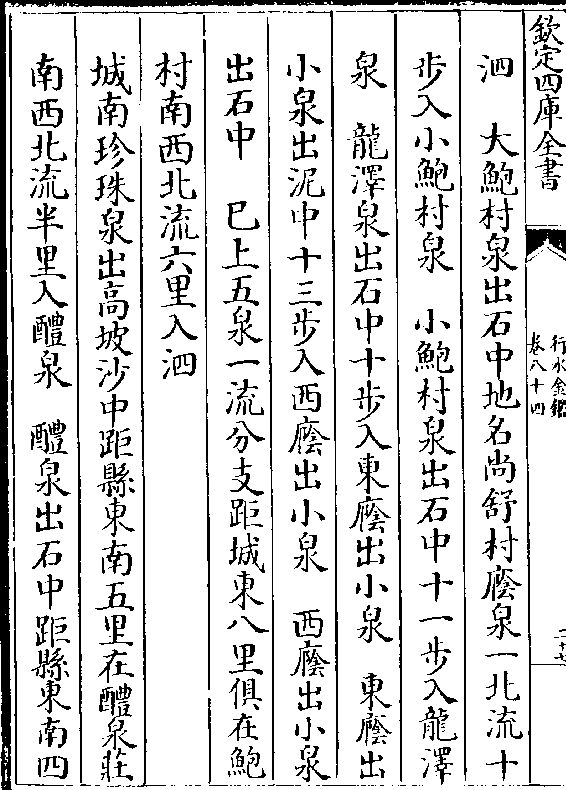 欽定四庫全書
行水金鑑
卷八十四
泗　大鮑村泉出石中地名尚舒村廕泉一北流十
步入小鮑村泉　小鮑村泉出石中十一步入龍澤
泉　龍澤泉出石中十步入東廕出小泉　東廕出
小泉出泥中十三步入西廕出小泉　西廕出小泉
出石中　已上五泉一流分支距城東八里俱在鮑
村南西北流六里入泗
城南珍珠泉出高坡沙中距縣東南五里在醴泉莊
南西北流半里入醴泉　醴泉出石中距縣東南四